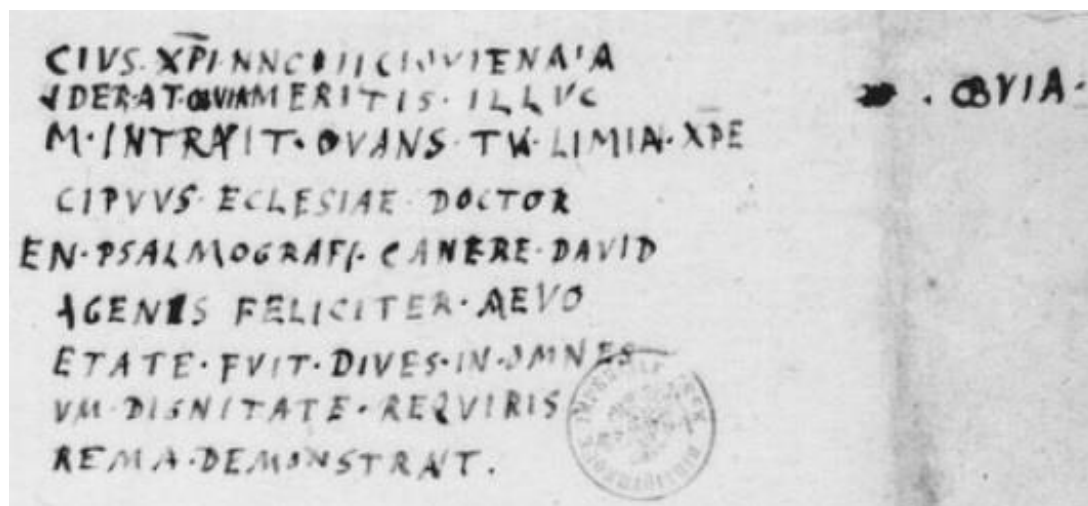 CIVS · XPI
DERAT · OBVIA MERITIS · ILLVC · OBVIA ·
M · INTRAVIT · OVANS · TV · LIMIN · XPE
CIPVVS · ECLESIAE · DOCTOR
EN · PSALMOGRAFI · CANERE · DAVID
AGENIS FELICITER · AEVO
ETATE · FVIT · DIVES · IN · OMNES
VM · DIGNITATE · REQVIRIS
REMA · DEMONSTRAT .